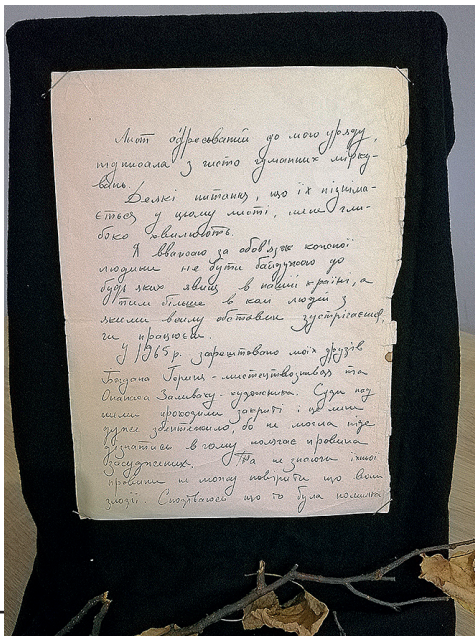 Лист адресований до мого уряду,
підписала з чисто гуманних мірку-
вань.
Деякі питання, що їх підніма-
ється у цьому листі, мене гли-
боко хвилюють.
Я вважаю за обов'язок кожної
людини не бути байдужою до
будь яких явищ в нашій країні, а
тим більше в колі людей з
якими волею обставин зустрічаєшся,
чи працюєш.
У 1965 р. заарештовано моїх друзів
Богдана Гориня – мистецтвознавця та
Опанаса Заливаху – художника. Суди над
ними проходили закриті і це мене
дуже збентежило, бо не можна ніде
дізнатись в чому полягає провина
засуджених. Та не знаючи їхньої
провини не можу повірити що вони
злодії. Сподіваюся що то була помилка